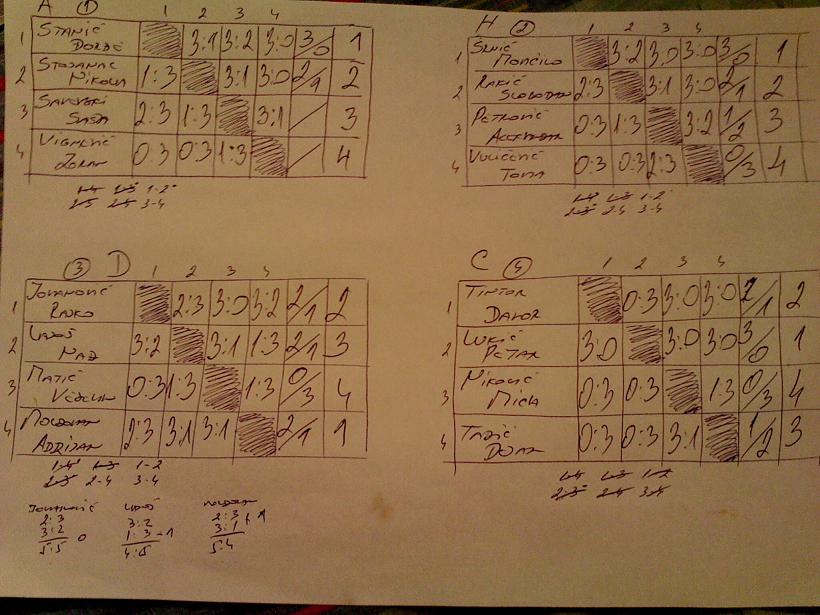 A 1
1 2 3 4
1 STANIĆ 3:1 3:2 3:0 3/0 1
2 STOJANAC NIKOLA 1:3 3:1 3:0 2/1 2
3 SAŠA 2:3 1:3 3:1 / 3
4 ZORAN 0:3 0:3 1:3 / 4
1-4 1-3 1-2
2-3 2-4 3-4
H 2
1 2 3 4
1 MOMČILO 3:2 3:0 3:0 3/0 1
2 RAKIĆ SLOBODAN 2:3 3:1 3:0 2/1 2
3 PETROVIĆ 0:3 1:3 3:2 1/2 3
4 TOMA 0:3 0:3 2:3 0/3 4
1-4 1-3 1-2
2-3 2-4 3-4
3 D
1 2 3 4
1 JOVANOVIĆ RAJKO 2:3 3:0 3:2 2/1 2
2 3:2 3:1 1:3 2/1 3
3 MATIĆ 0:3 1:3 1:3 0/3 4
4 MOLDOVAN ADRIJAN 2:3 3:1 3:1 2/1 1
1-4 1-3 1-2
2-3 2-4 3-4
JOVANOVIĆ MOLDOVAN
2:3 3:2 2:3
3:2 0 1:3 -1 3:1 +1
5:5 4:5 5:4
C 4
1 2 3 4
1 TINTOR DAVOR 0:3 3:0 3:0 2/1 2
2 LUKIĆ PETAR 3:0 3:0 3:0 3/0 1
3 0:3 0:3 1:3 0/3 4
4 TADIĆ 0:3 0:3 3:1 1/2 3
1-4 1-3 1-2
2-3 2-4 3-4